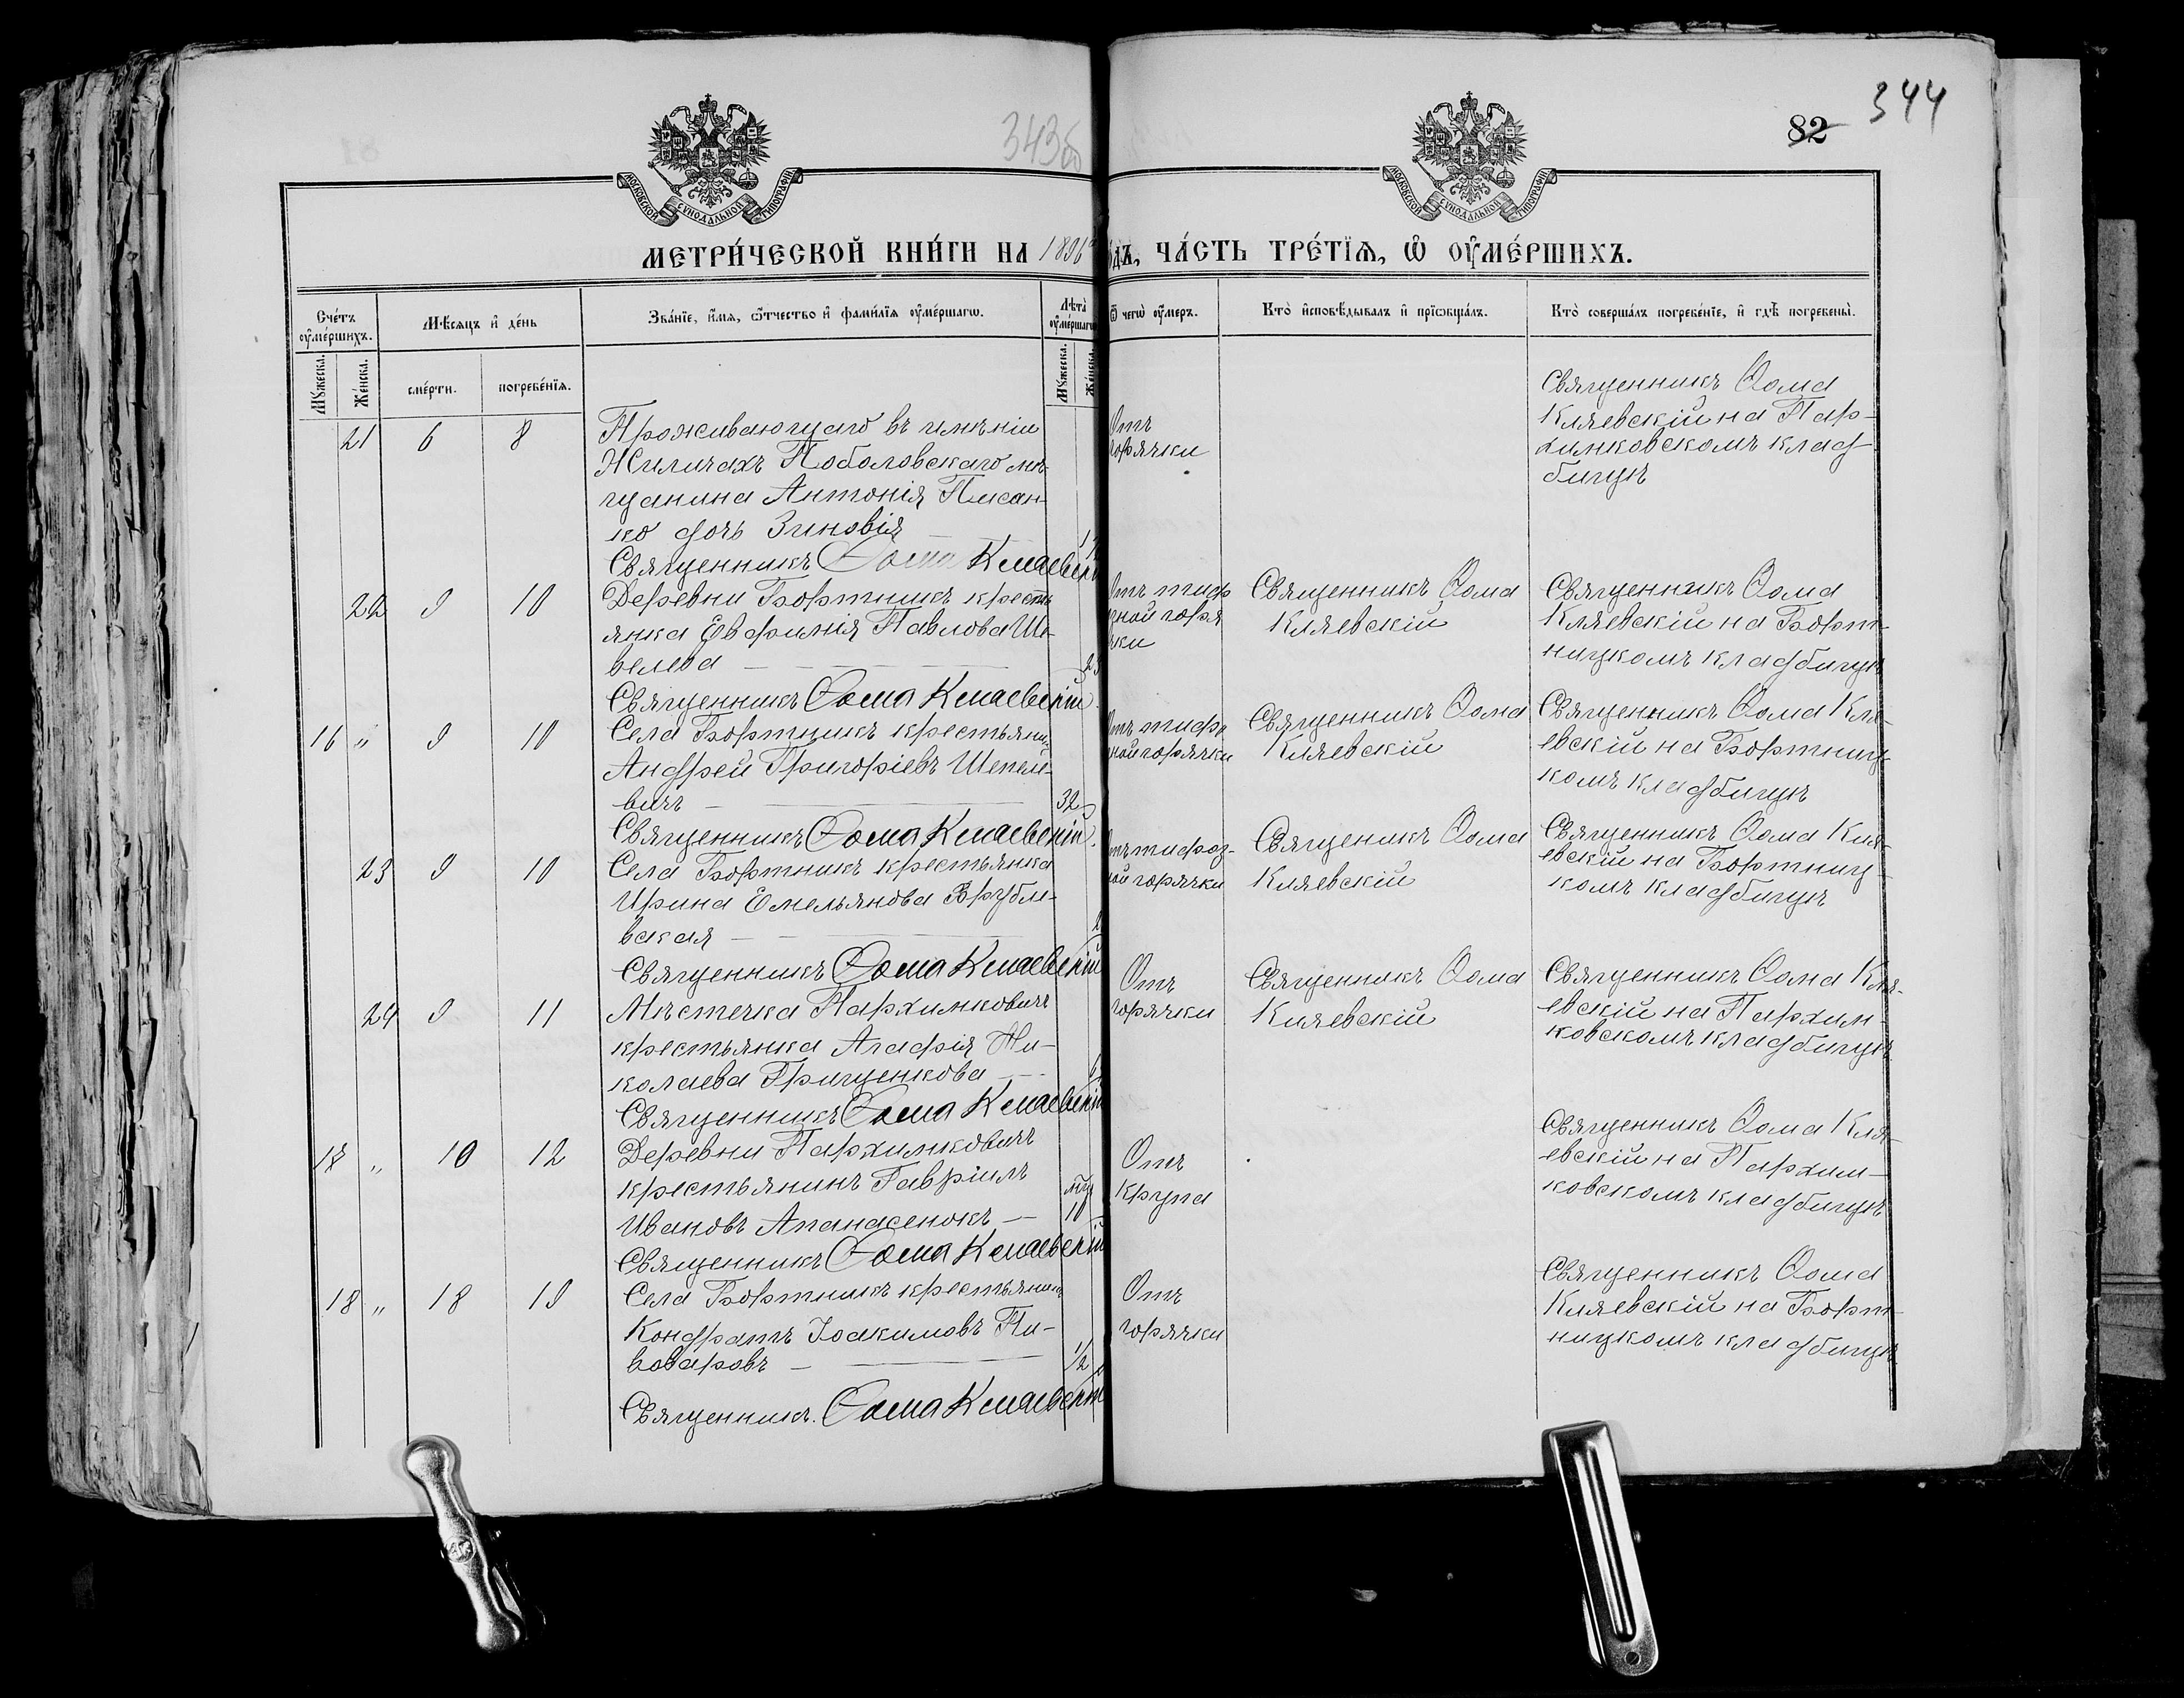 343об
82 344
МОСКОВСКОЙ СѴНОДАЛЬНОЙ ТИПОГРАФІИ
МОСКОВСКОЙ СѴНОДАЛЬНОЙ ТИПОГРАФІИ
МЕТРИ́ЧЕСКОЙ КНИ́ГИ НА 1896 го́дъ, ЧА́СТЬ ТРЕ́ТЇѦ, Ѡ ОУМЕ́РШИХЪ.
Сче́тъ оуме́ршихъ.
Мѣ́сяцъ и де́нь
Зва́нїе, и́мя, ѿтчество и фами́лїя оуме́ршагѡ.
Лѣта̀ оуме́ршагѡ
Ѿ чегѡ̀ оу́меръ.
Кто̀ исповѣ́дывалъ и прїѡбща́лъ.
Кто̀ соверша́лъ погребе́нїе, и гдѣ̀ погребены̀.
Мꙋ́жеска.
Же́нска.
сме́рти.
погребе́нїя.
Мꙋ́жеска.
Же́нска.
21 6 8 Проживающаго въ имѣніи
Жиличахъ Поболовскаго мѣ-
щанина Антонія Писан-
ко дочь Зиновія
Отъ
горячки
Священникъ Ѳома
Кляевскій на Пар-
химковскомъ клад-
бищѣ
Священникъ Ѳома Кляевскій
22 9 10 Деревни Бортникъ кресть
янка Евфимія Павлова Ше-
велева 23
тиф
ной горя
чки
Священникъ Ѳома
Кляевскій
Священникъ Ѳома
Кляевскій на Борт-
ницкомъ кладбищѣ
Священникъ Ѳома Кляевскій
16 „ 9 10 Села Бортникъ крестьянинъ
Андрей Григоріевъ Шепеле-
вичъ 32
тифо
ной горячки
Священникъ Ѳома
Кляевскій
Священникъ Ѳома Кля-
евскій на Бортниц-
комъ кладбищѣ
Священникъ Ѳома Кляевскій.
23 9 10 Села Бортникъ крестьянка
Ирина Емельянова Врубле-
вская
тифоз-
ной горячки
Священикъ Ѳома
Кляевскій
Священникъ Ѳома Кля-
евскій на Бортниц-
комъ кладбищѣ
Священникъ Ѳома Кляевскій
24 9 11 Мѣстечка Пархимковичъ
крестьянка Агафія Ни-
колаева Грищенкова
Отъ
горячки
Священникъ Ѳома
Кляевскій
Священникъ Ѳома Кля-
евскій на Пархим-
ковскомъ кладбищѣ
Священникъ Ѳома Кляевскій
„ 10 12 Деревни Пархимковичъ
крестьянинъ Гавріилъ
Ивановъ Апанасенокъ 10
Отъ
крупа
Священникъ Ѳома Кля-
евскій на Пархим-
ковскомъ кладбищѣ
Священникъ Ѳома Кляевскій
18 „ 18 19 Села Бортникъ крестьянинъ
Кондратъ Іоакимовъ Пи-
воваровъ 1/2
Отъ
горячки
Священникъ Ѳома
Кляевскій на Борт-
ницкомъ кладбищѣ
Священникъ. Ѳома Кляевскій